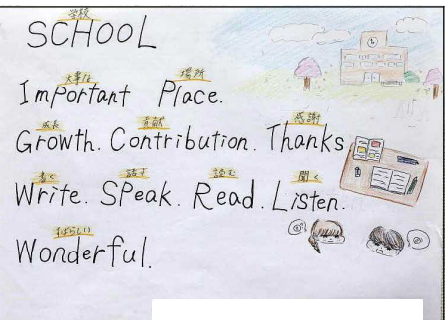 学校
SCHOOL
大事な 場所
Important Place.
成長 貢献 感謝
Growth. Contribution. Thanks
書く 話す 読む 聞く
Write. Speak. Read. Listen.
すばらしい
Wonderful.